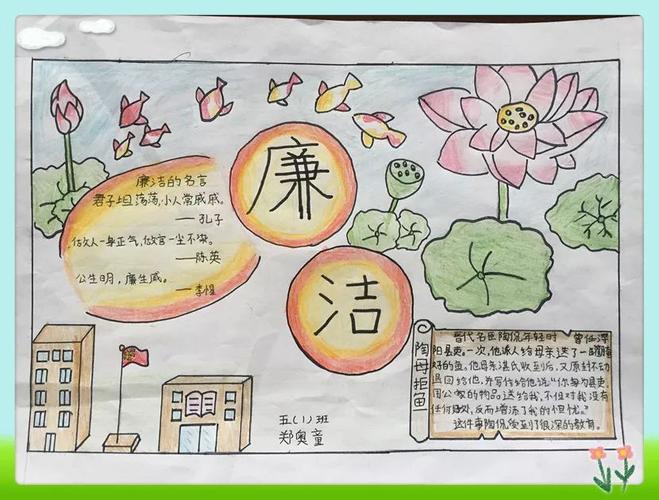 廉
洁
廉洁的名言
君子坦荡荡,小人常戚戚。
——孔子
做人一身正气,做官一尘不染。
——陈英
公生明,廉生威。
——李惺
五(1)班
郑奥童
陶母拒鱼
晋代名臣陶侃年轻时 曾任浔
阳县吏。一次,他派人给母亲送了一
好的鱼。他母亲湛氏收到后,又原封不动
退回给他,并写信给他说:“你身为县吏,
用公家的物品送给我,不但对我没有
任何好处,反而增添了我的担忧。”
这件事陶侃受到了很深的教育。